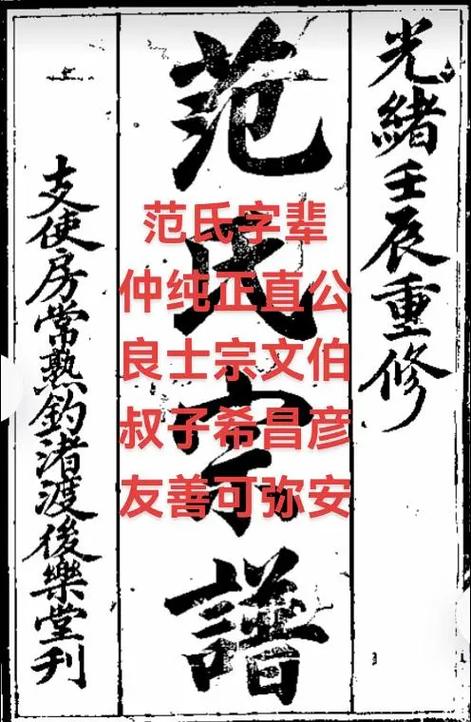 光緒壬辰重修
范氏宗譜
支使房常熟釣渚渡後樂堂刊
范氏字辈
仲纯正直公
良士宗文伯
叔子希昌彦
友善可弥安